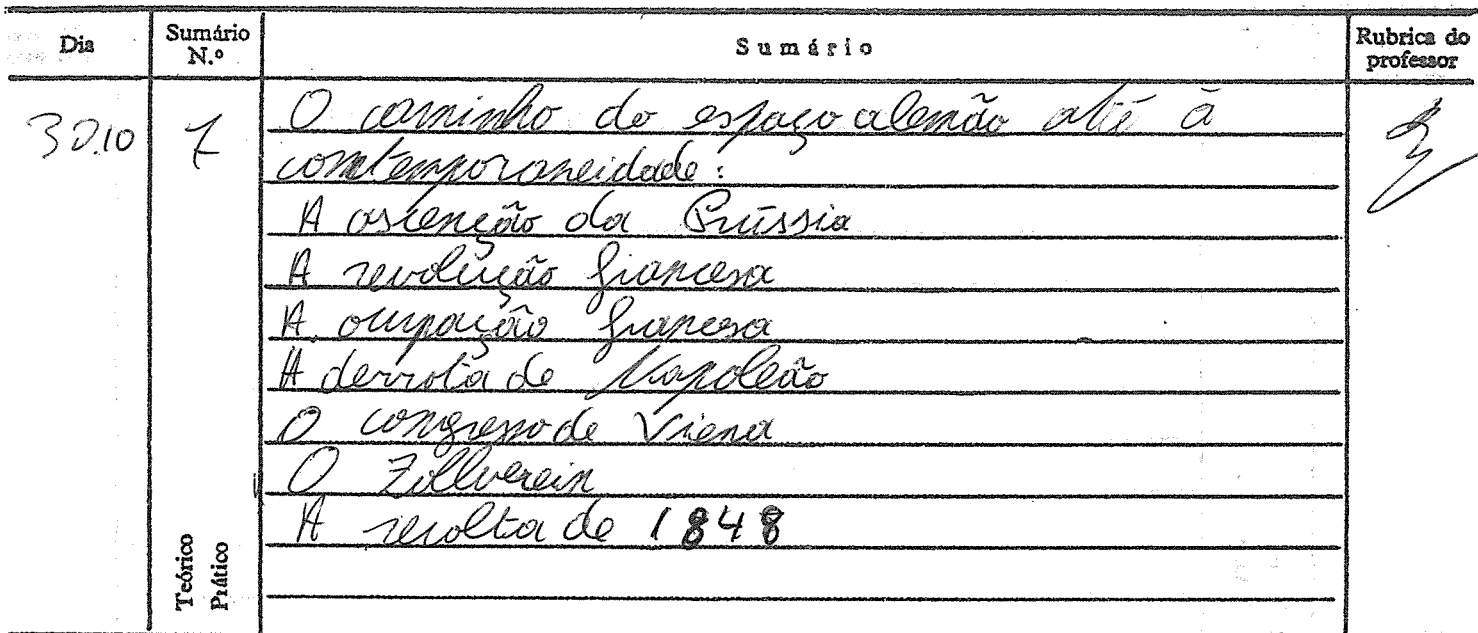 Dia
Sumário N.º
Sumário
Rubrica do professor
30.10
7
O caminho do espaço alemão até à
contemporaneidade:
A ascenção da Prússia
A revolução francesa
A ocupação francesa
A derrota de Napoleão
O congresso de Viena
O Zollverein
A revolta de 1848
Teórico
Prático